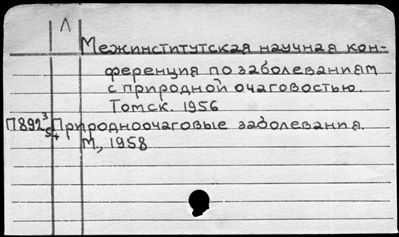 Л
Межинститутская научная кон-
ференция по заболеваниям
с природной очаговостью.
Томск. 1956
П892 3/54 Природноочаговые заболевания.
М., 1958